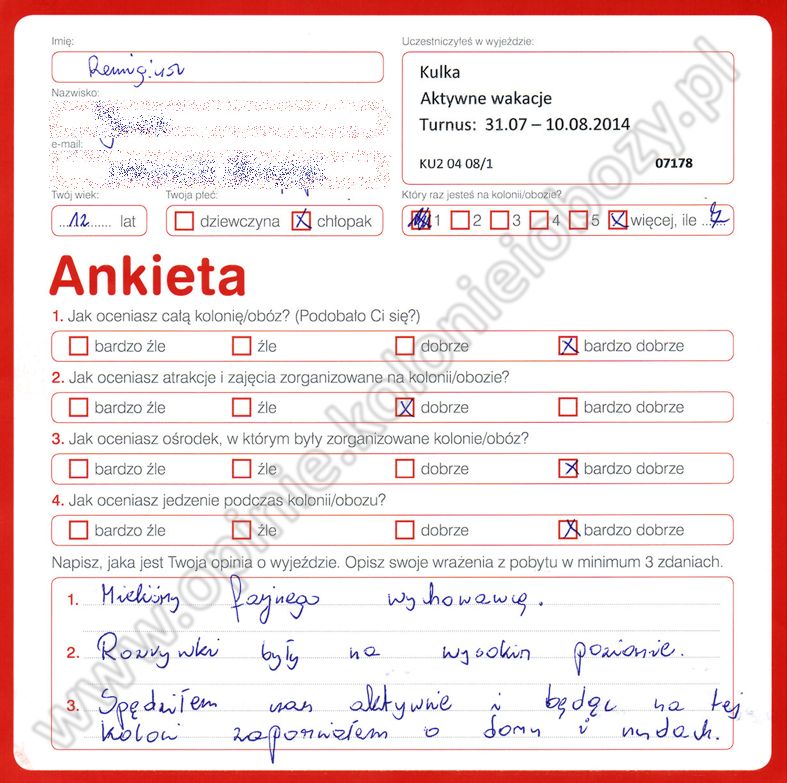 Imię:
Uczestniczyłeś w wyjeździe:
Remigiusz
Kulka
Aktywne wakacje
Turnus: 31.07 – 10.08.2014
KU2 04 08/1 07178
Nazwisko:
e-mail:
Twój wiek:
Twoja płeć:
Który raz jesteś na kolonii/obozie?
12 lat
dziewczyna chłopak
1 2 3 4 5 więcej, ile 7
Ankieta
1. Jak oceniasz całą kolonię/obóz? (Podobało Ci się?)
bardzo źle źle dobrze bardzo dobrze
2. Jak oceniasz atrakcje i zajęcia zorganizowane na kolonii/obozie?
bardzo źle źle dobrze bardzo dobrze
3. Jak oceniasz ośrodek, w którym były zorganizowane kolonie/obóz?
bardzo źle źle dobrze bardzo dobrze
4. Jak oceniasz jedzenie podczas kolonii/obozu?
bardzo źle źle dobrze bardzo dobrze
Napisz, jaka jest Twoja opinia o wyjeździe. Opisz swoje wrażenia z pobytu w minimum 3 zdaniach.
1. Mieliśmy fajnego wychowawcę.
2. Rozrywki były na wysokim poziomie.
3. Spędziłem czas aktywnie i będąc na tej
kolonii zapomniałem o domu i nudach.
www.opinie.kolonieiobozy.pl